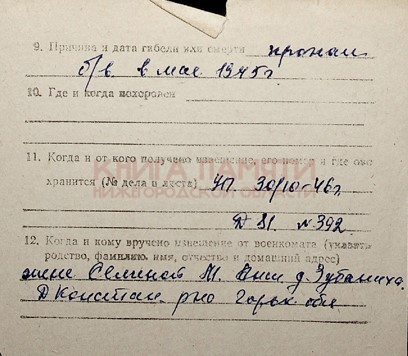 9. Причина и дата гибели или смерти пропал
б/в. в мае 1945г
10. Где и когда похоронен
11. Когда и от кого получено извещение, его номер и где оно
хранится (№ дела и листа) УП. 30/10-46г
Д 81. №392
КНИГА ПАМЯТИ
НИЖЕГОРОДСКОЙ ОБЛАСТИ
12. Когда и кому вручено извещение от военкомата (указать
родство, фамилию, имя, отчество и домашний адрес)
жене М. д. Зубаниха.
Д Констан. рно Горьк обл